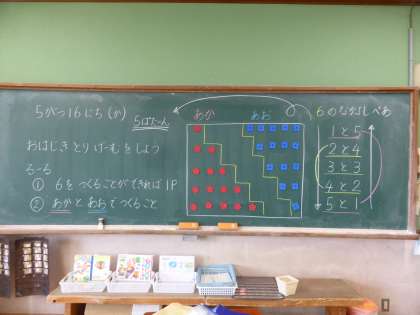 5がつ16にち(か)
5ぱたーん
おはじきとりげーむをしよう
るーる
① 6をつくることができれば1P
② あかとあおでつくること
あか
あお
6のなかよしぺあ
1と5
2と4
3と3
4と2
5と1